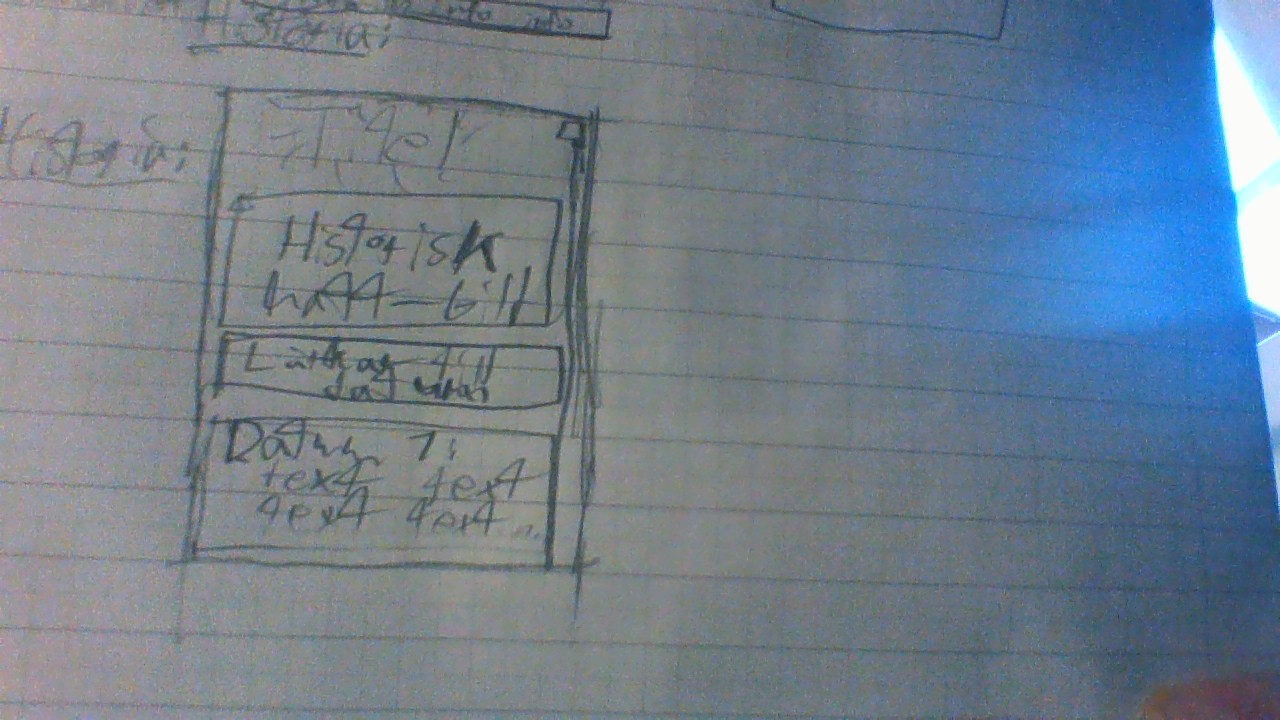 info info
Historia:
Historia:
Titel
Historisk
hatt-bild
Länkar till
Datum 1:
text text
text text...